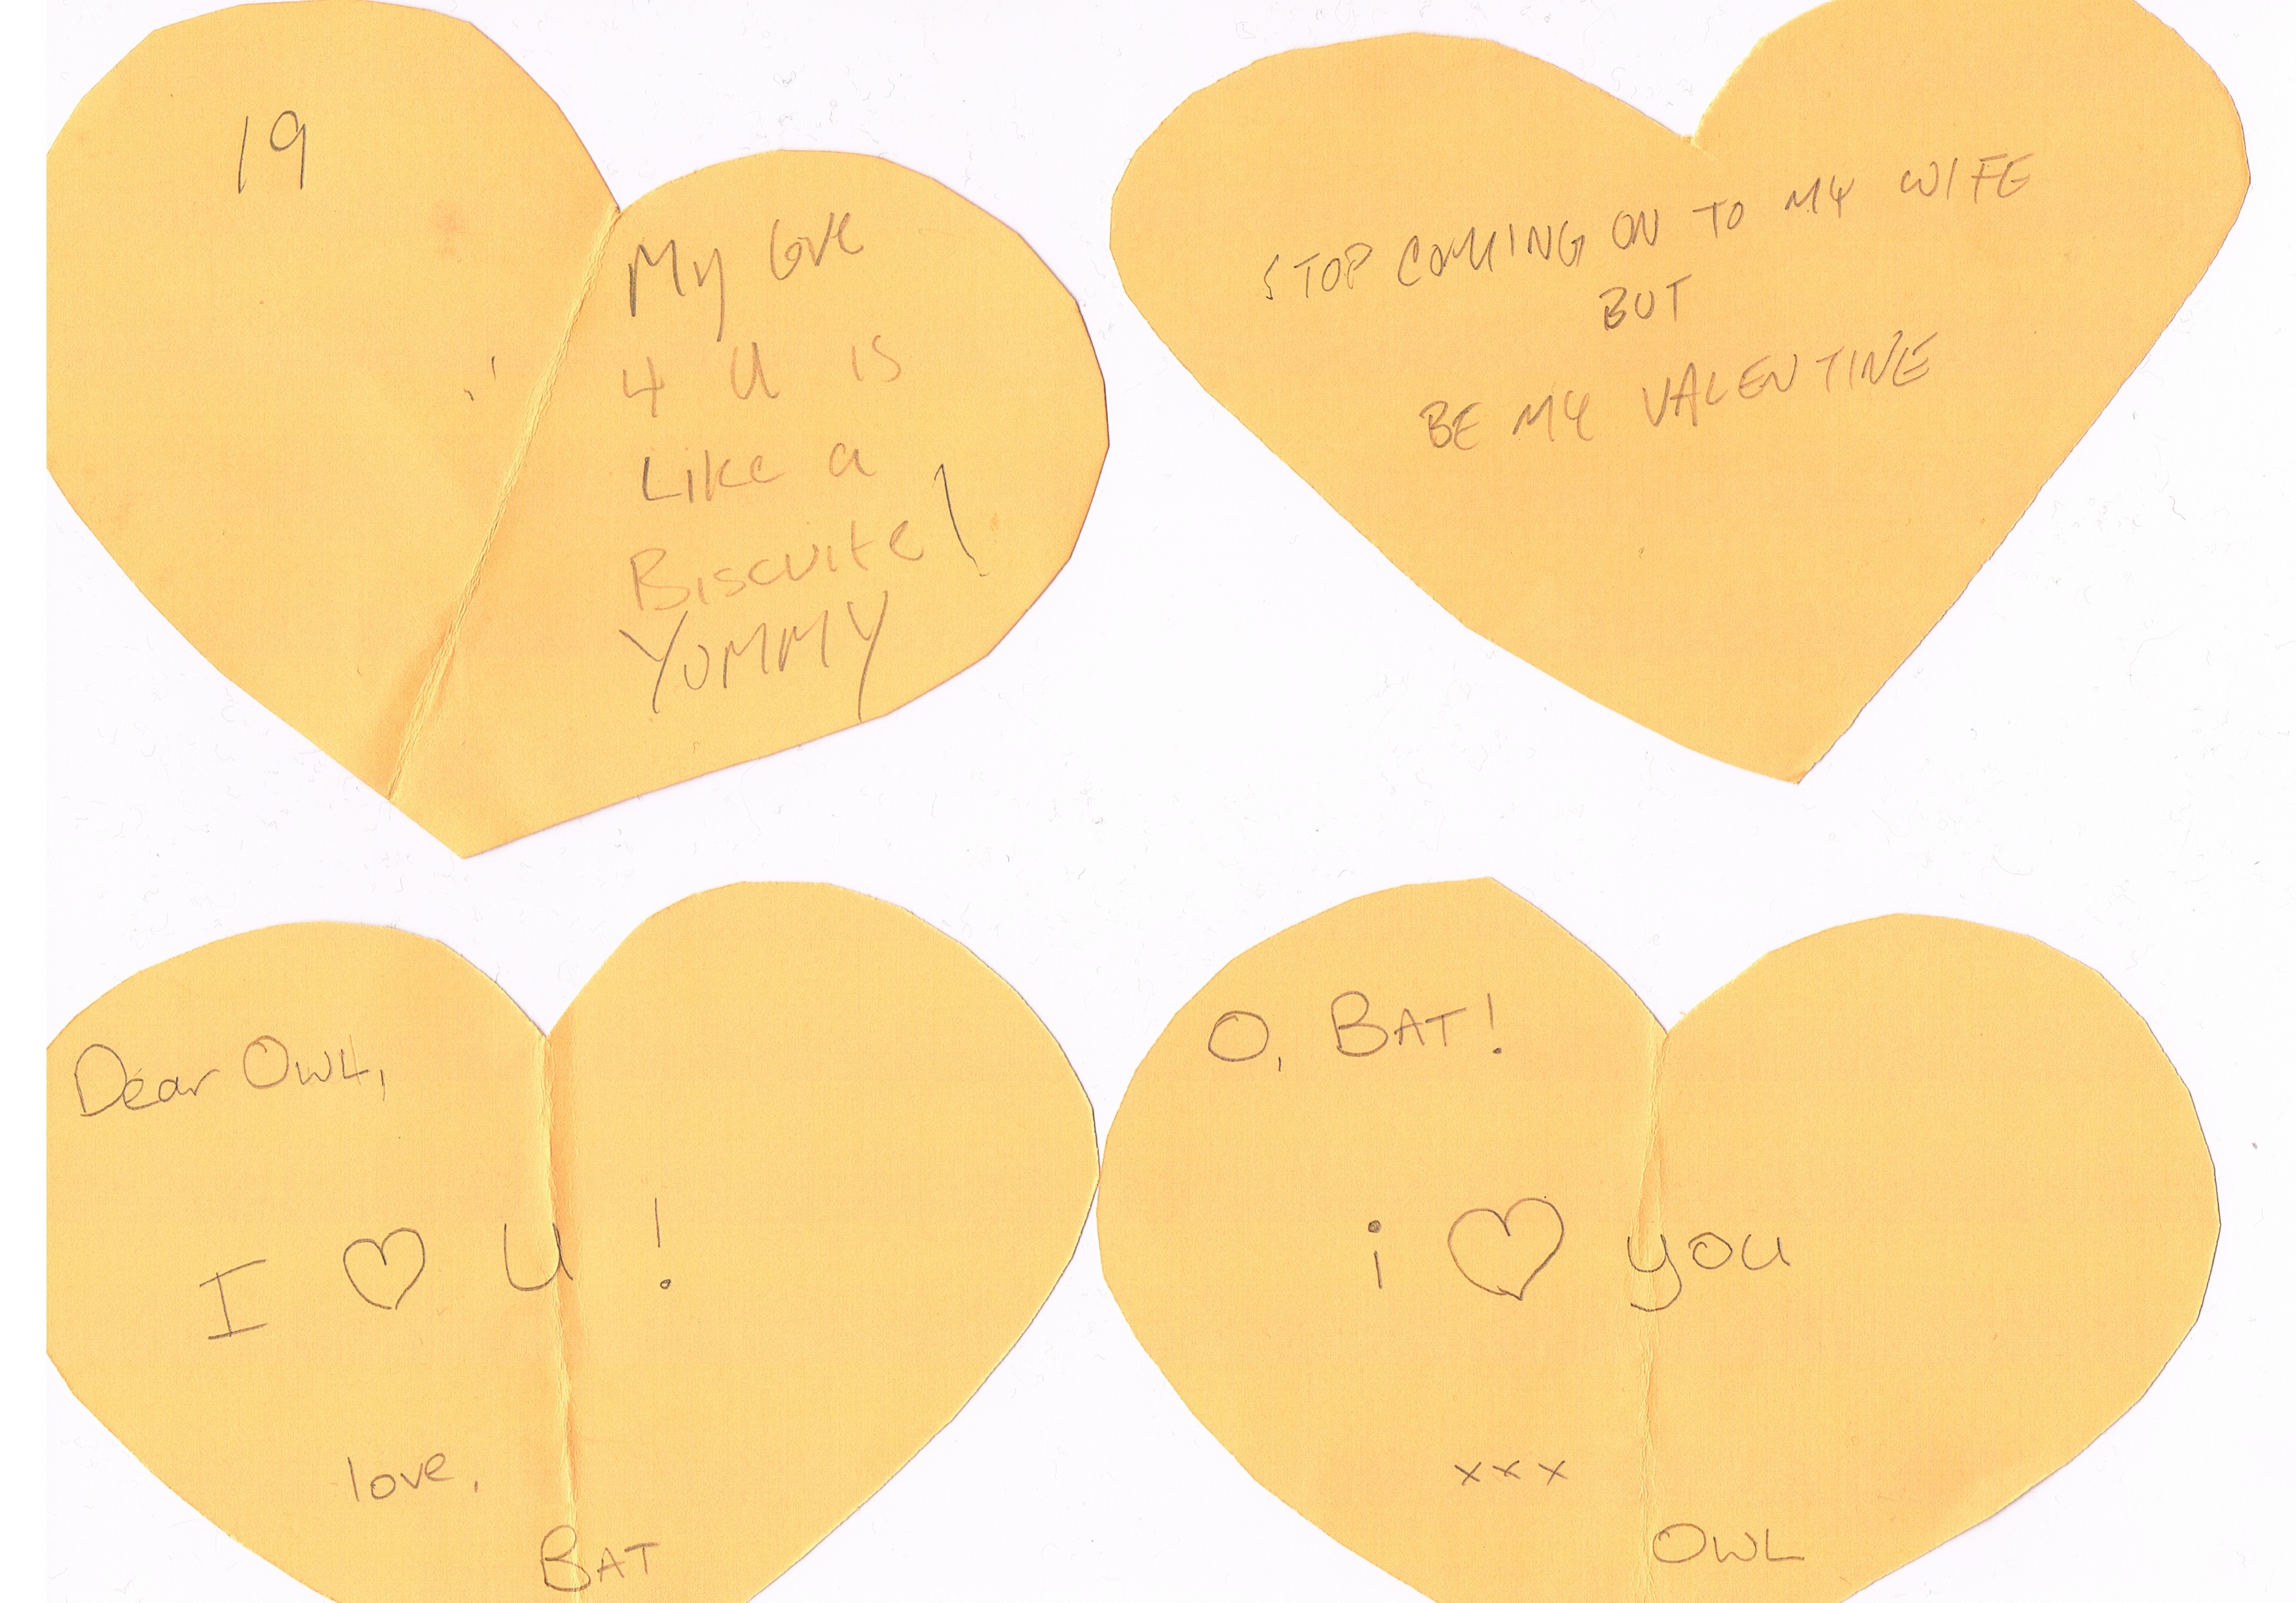 19
My love
4 U is
Like a
Biscuite!
YUMMY
STOP COMING ON TO MY WIFE
BUT
BE MY VALENTINE
Dear OWL,
I ♡ U !
love,
BAT
O, BAT!
i ♡ you
xxx
OWL